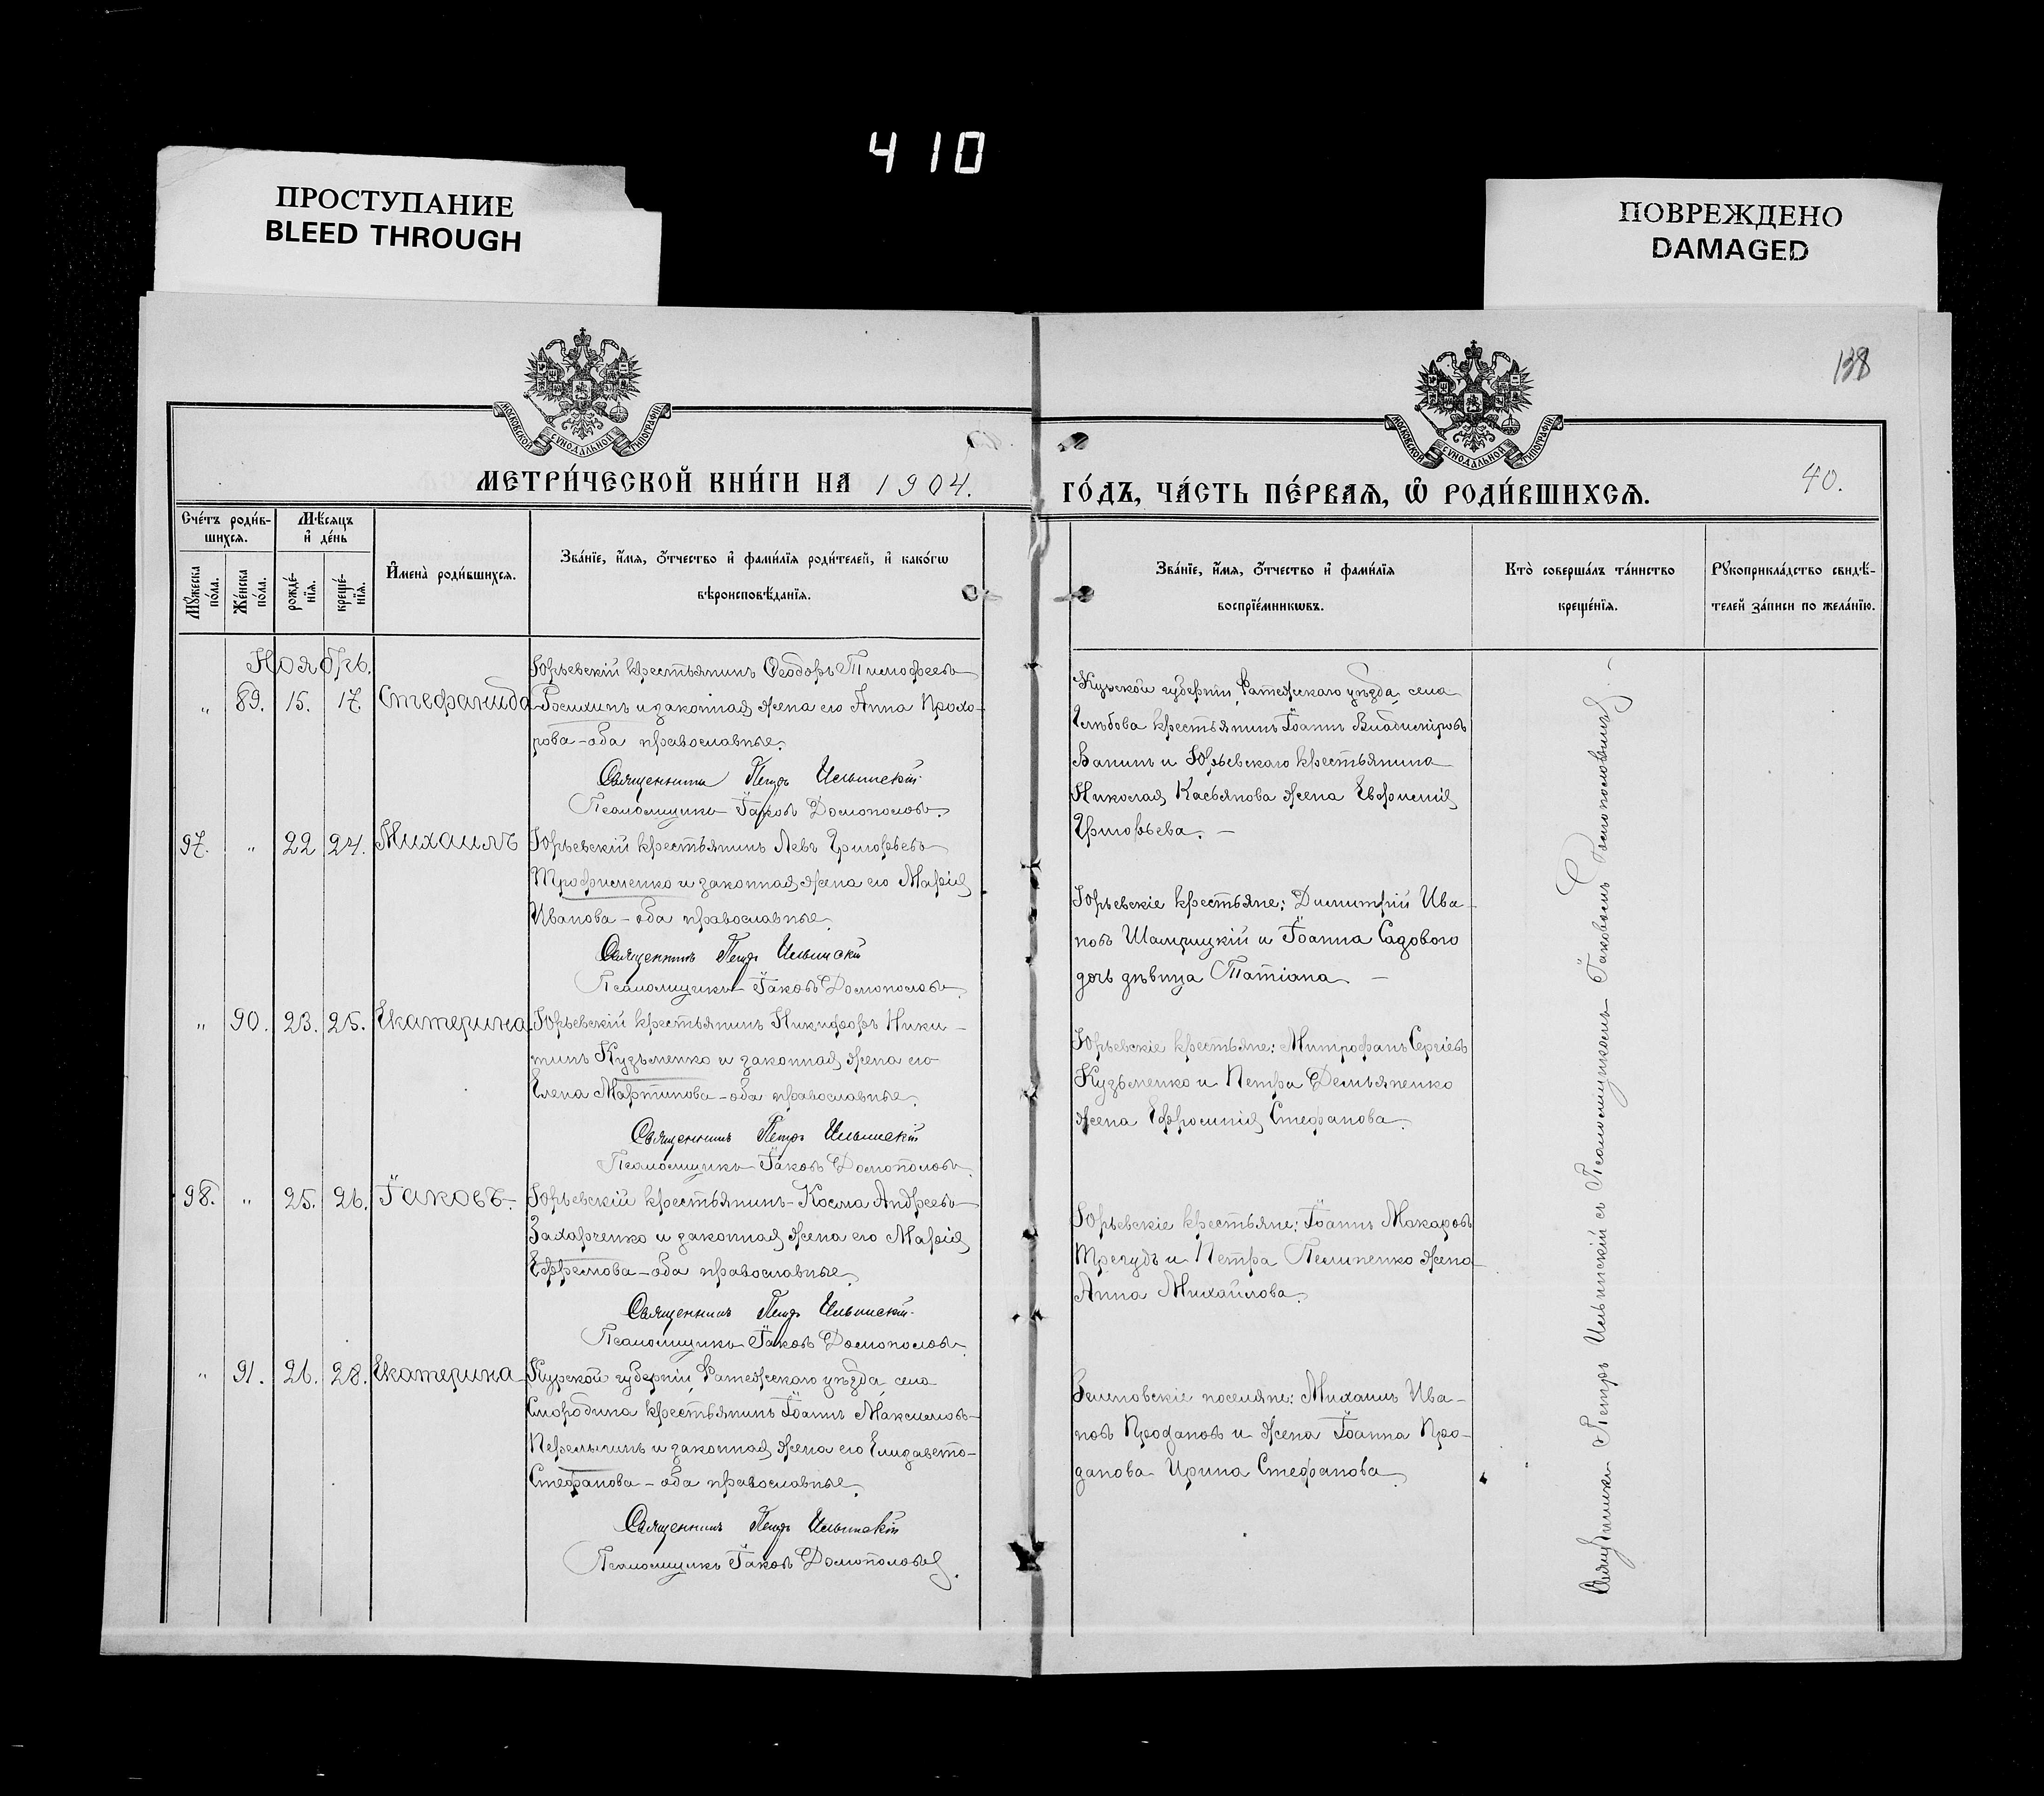 410
ПРОСТУПАНИЕ
BLEED THROUGH
ПОВРЕЖДЕНО
DAMAGED
138
МОСКОВСКОЙ СѴНОДАЛЬНОЙ ТИПОГРАФІИ
МОСКОВСКОЙ СѴНОДАЛЬНОЙ ТИПОГРАФІИ
МЕТРИ́ЧЕСКОЙ КНИ́ГИ НА 1904.
ГО́ДЪ, ЧА́СТЬ ПЕ́РВАѦ, Ѡ҆ РОДИ́ВШИХСѦ.
40.
Сче́тъ роди́в-
шихсѧ.
Мꙋ́жеска по́ла.
Же́нска по́ла.
Мѣ́сѧцъ и҆ де́нь
рожде́-
нїѧ.
креще́-
нїѧ.
И҆мена̀ роди́вшихсѧ.
Зва́нїе, и҆́мѧ, ѻ҆́тчество и҆ фами́лїѧ роди́телей, и҆ како́гѡ
вѣроисповѣ́данїѧ.
Зва́нїе, и҆́мѧ, ѻ҆́тчество и҆ фами́лїѧ
воспрїе́мникѡвъ.
Кто̀ соверша́лъ та́инство
креще́нїѧ.
Рꙋкоприкла́дство свидѣ́-
телей за́писи по жела́нїю.
Ноябрь.
„ 89. 15. 17. Стефанида
Юрьевскій крестьянинъ Ѳеодоръ Тимофеевъ
и законная жена его Анна Прохо-
рова - оба православные.
Священникъ Петръ Ильинскій
Псаломщикъ Іаковъ Домополовъ.
Курской губерніи, Фатежскаго уѣзда, села
Глѣбова крестьянинъ Іоаннъ Владиміровъ
Ванинъ и Юрьевскаго крестьянина
Николая Касьянова жена Евфимія
Григорьева. —
97. „ 22 24. Михаилъ
Юрьевскій крестьянинъ Левъ Григорьевъ
Трофименко и законная жена его Марія
Иванова - оба православные.
Священникъ Петръ Ильинскій
Псаломщикъ Іаковъ Домополовъ.
Юрьевскіе крестьяне: Димитрій Ива-
новъ и Іоанна Садового
дочь дѣвица Татіана —
„ 90. 23. 25. Екатерина
Юрьевскій крестьянинъ Никифоръ Ники-
тинъ Кузьменко и законная жена его
Елена Мартинова - оба православные.
Священникъ Петръ Ильинскій
Псаломщикъ Іаковъ Домополовъ.
Юрьевскіе крестьяне: Митрофанъ Сергіевъ
Кузьменко и Петра Демьяненко
жена Ефросинія Стефанова.
98. „ 25. 26. Іаковъ.
Юрьевскій крестьянинъ Косма Андреевъ
Захарченко и законная жена его Марія
Ефремова - оба православные.
Священникъ Петръ Ильинскій
Псаломщикъ Іаковъ Домополовъ.
Юрьевскіе крестьяне: Іоаннъ Макаровъ
и Петра жена
Анна Михайлова.
„ 91. 26. 28. Екатерина
Курской губерніи, Фатежскаго уѣзда, села
Смородина крестьянинъ Іоаннъ Максимовъ
и законная жена его Елизавета
Стефанова - оба православные.
Священникъ Петръ Ильинскій
Псаломщикъ Іаковъ Домополовъ.
поселяне: Михаилъ Ива-
новъ Продановъ и жена Іоанна Про-
данова Ирина Стефанова.
Священникъ Петръ Ильинскій съ Псаломщикомъ Іаковомъ